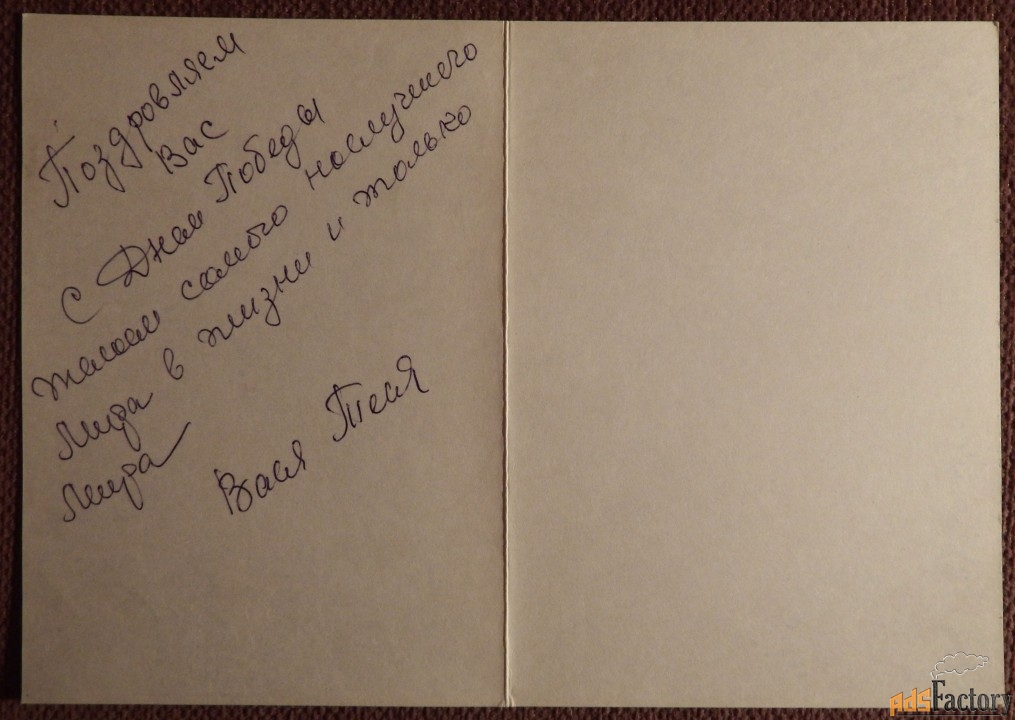 Поздровляем
Вас
С Днем Победы
желаем самого наилучшего
мира в жизни и только
мира
Вася Тася
AdsFactory